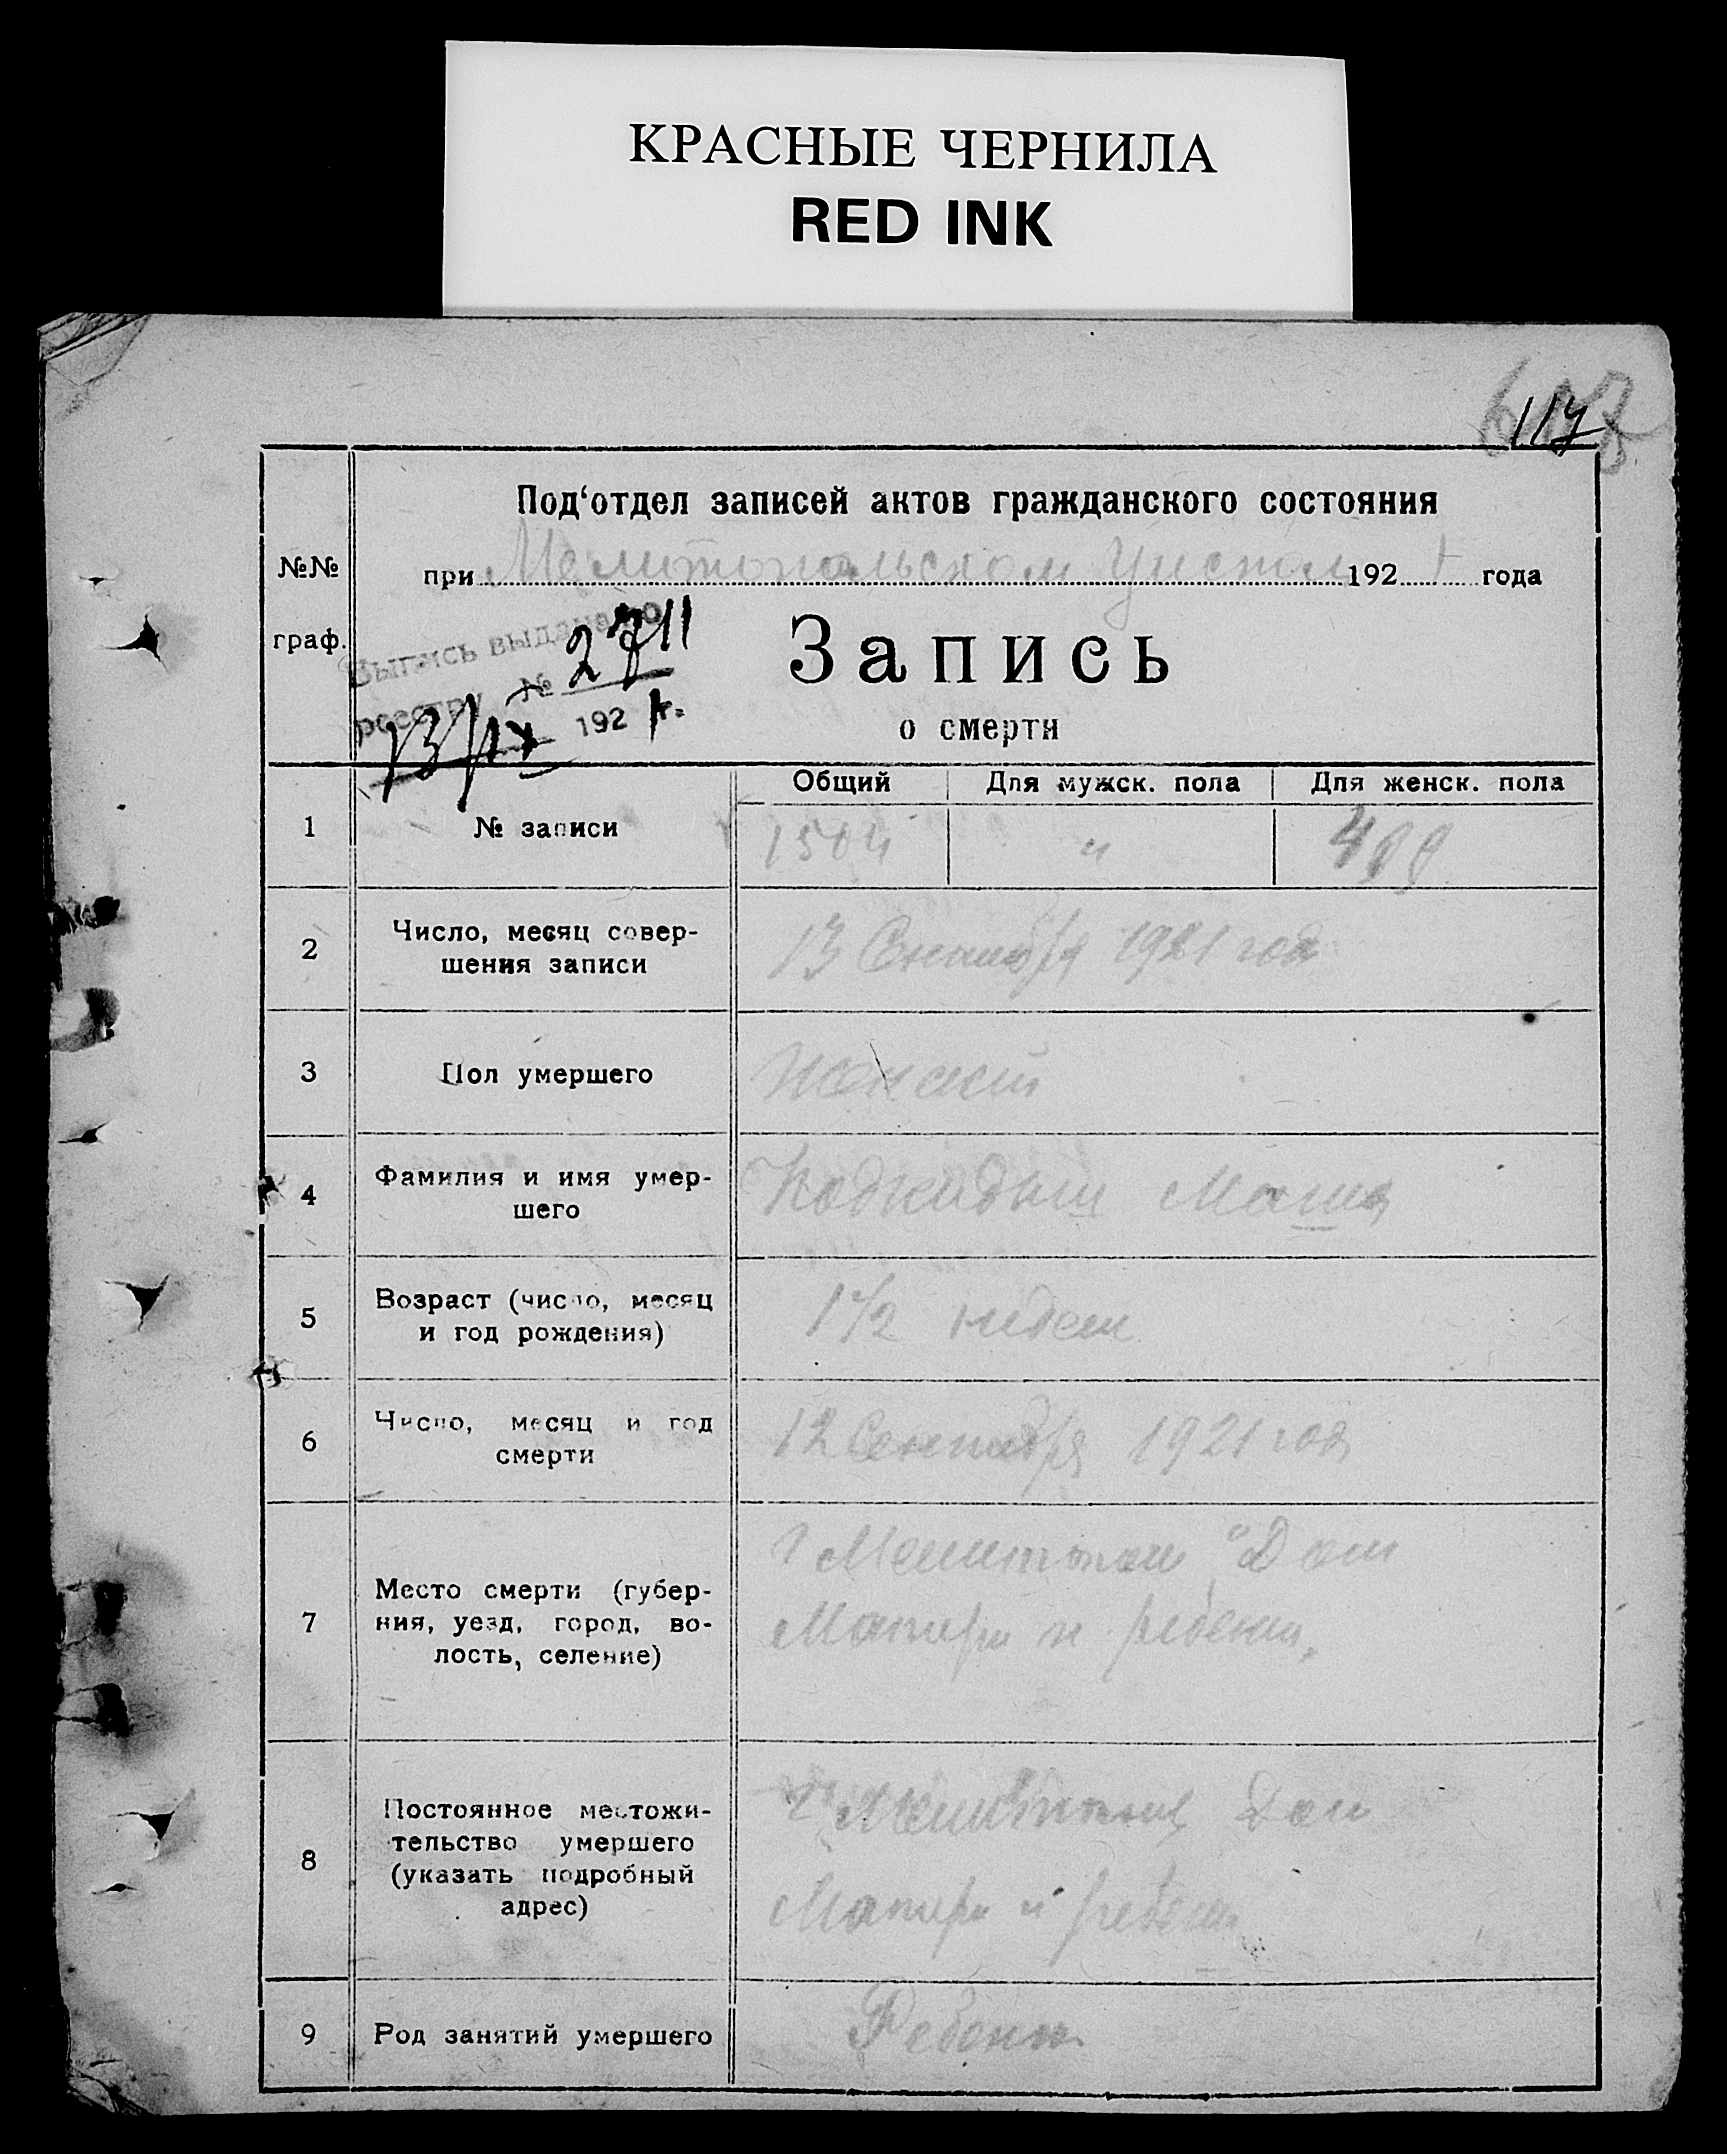 КРАСНЫЕ ЧЕРНИЛА
RED INK
117
Под‘отдел записей актов гражданского состояния
№№
граф.
при Мелитопольском 1921 года
Выпись выдана по
реестру № 2711
13/IX 1921 г.
Запись
о смерти
Общий Для мужск. пола Для женск. пола
1 № записи 1504 "
2 Число, месяц совер-
шения записи
13 Сентября 1921 год
3 Пол умершего Женский
4 Фамилия и имя умер-
шего
Подкидыш Маша
5 Возраст (число, месяц
и год рождения)
1 1/2 недели
6 Число, месяц и год
смерти
12 Сентября 1921 год
7 Место смерти (губер-
ния, уезд, город, во-
лость, селение)
г Мелитополь "Дом
Матери и ребенка"
8 Постоянное местожи-
тельство умершего
(указать подробный
адрес)
г Мелитополь Дом
Матери и ребенка
9 Род занятий умершего Ребенок